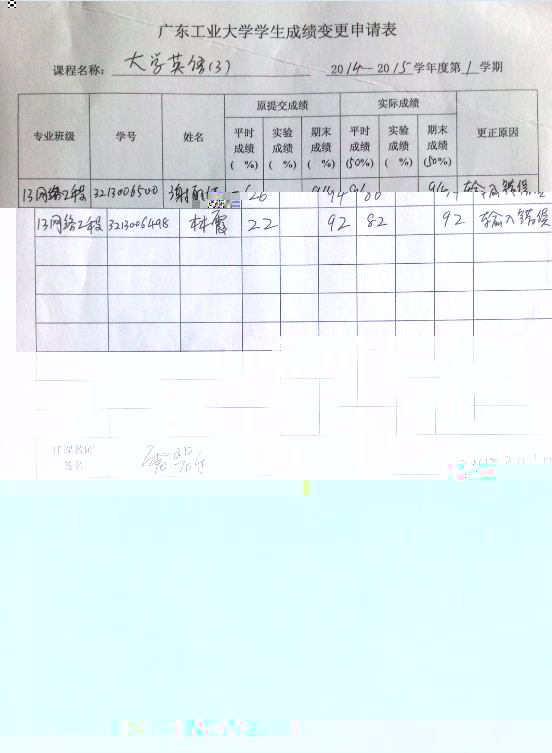 广东工业大学学生成绩变更申请表
课程名称: 大学英语(3) 2014—2015学年度第1学期
专业班级 学号 姓名 原提交成绩 实际成绩 更正原因
平时成绩( %) 实验成绩( %) 期末成绩( %) 平时成绩(50%) 实验成绩( %) 期末成绩(50%)
13网络工程 3213006500 谢 26 94 94 输入错误
13网络工程 3213006498 林霞 22 92 82 92 输入错误
任课教师
签名